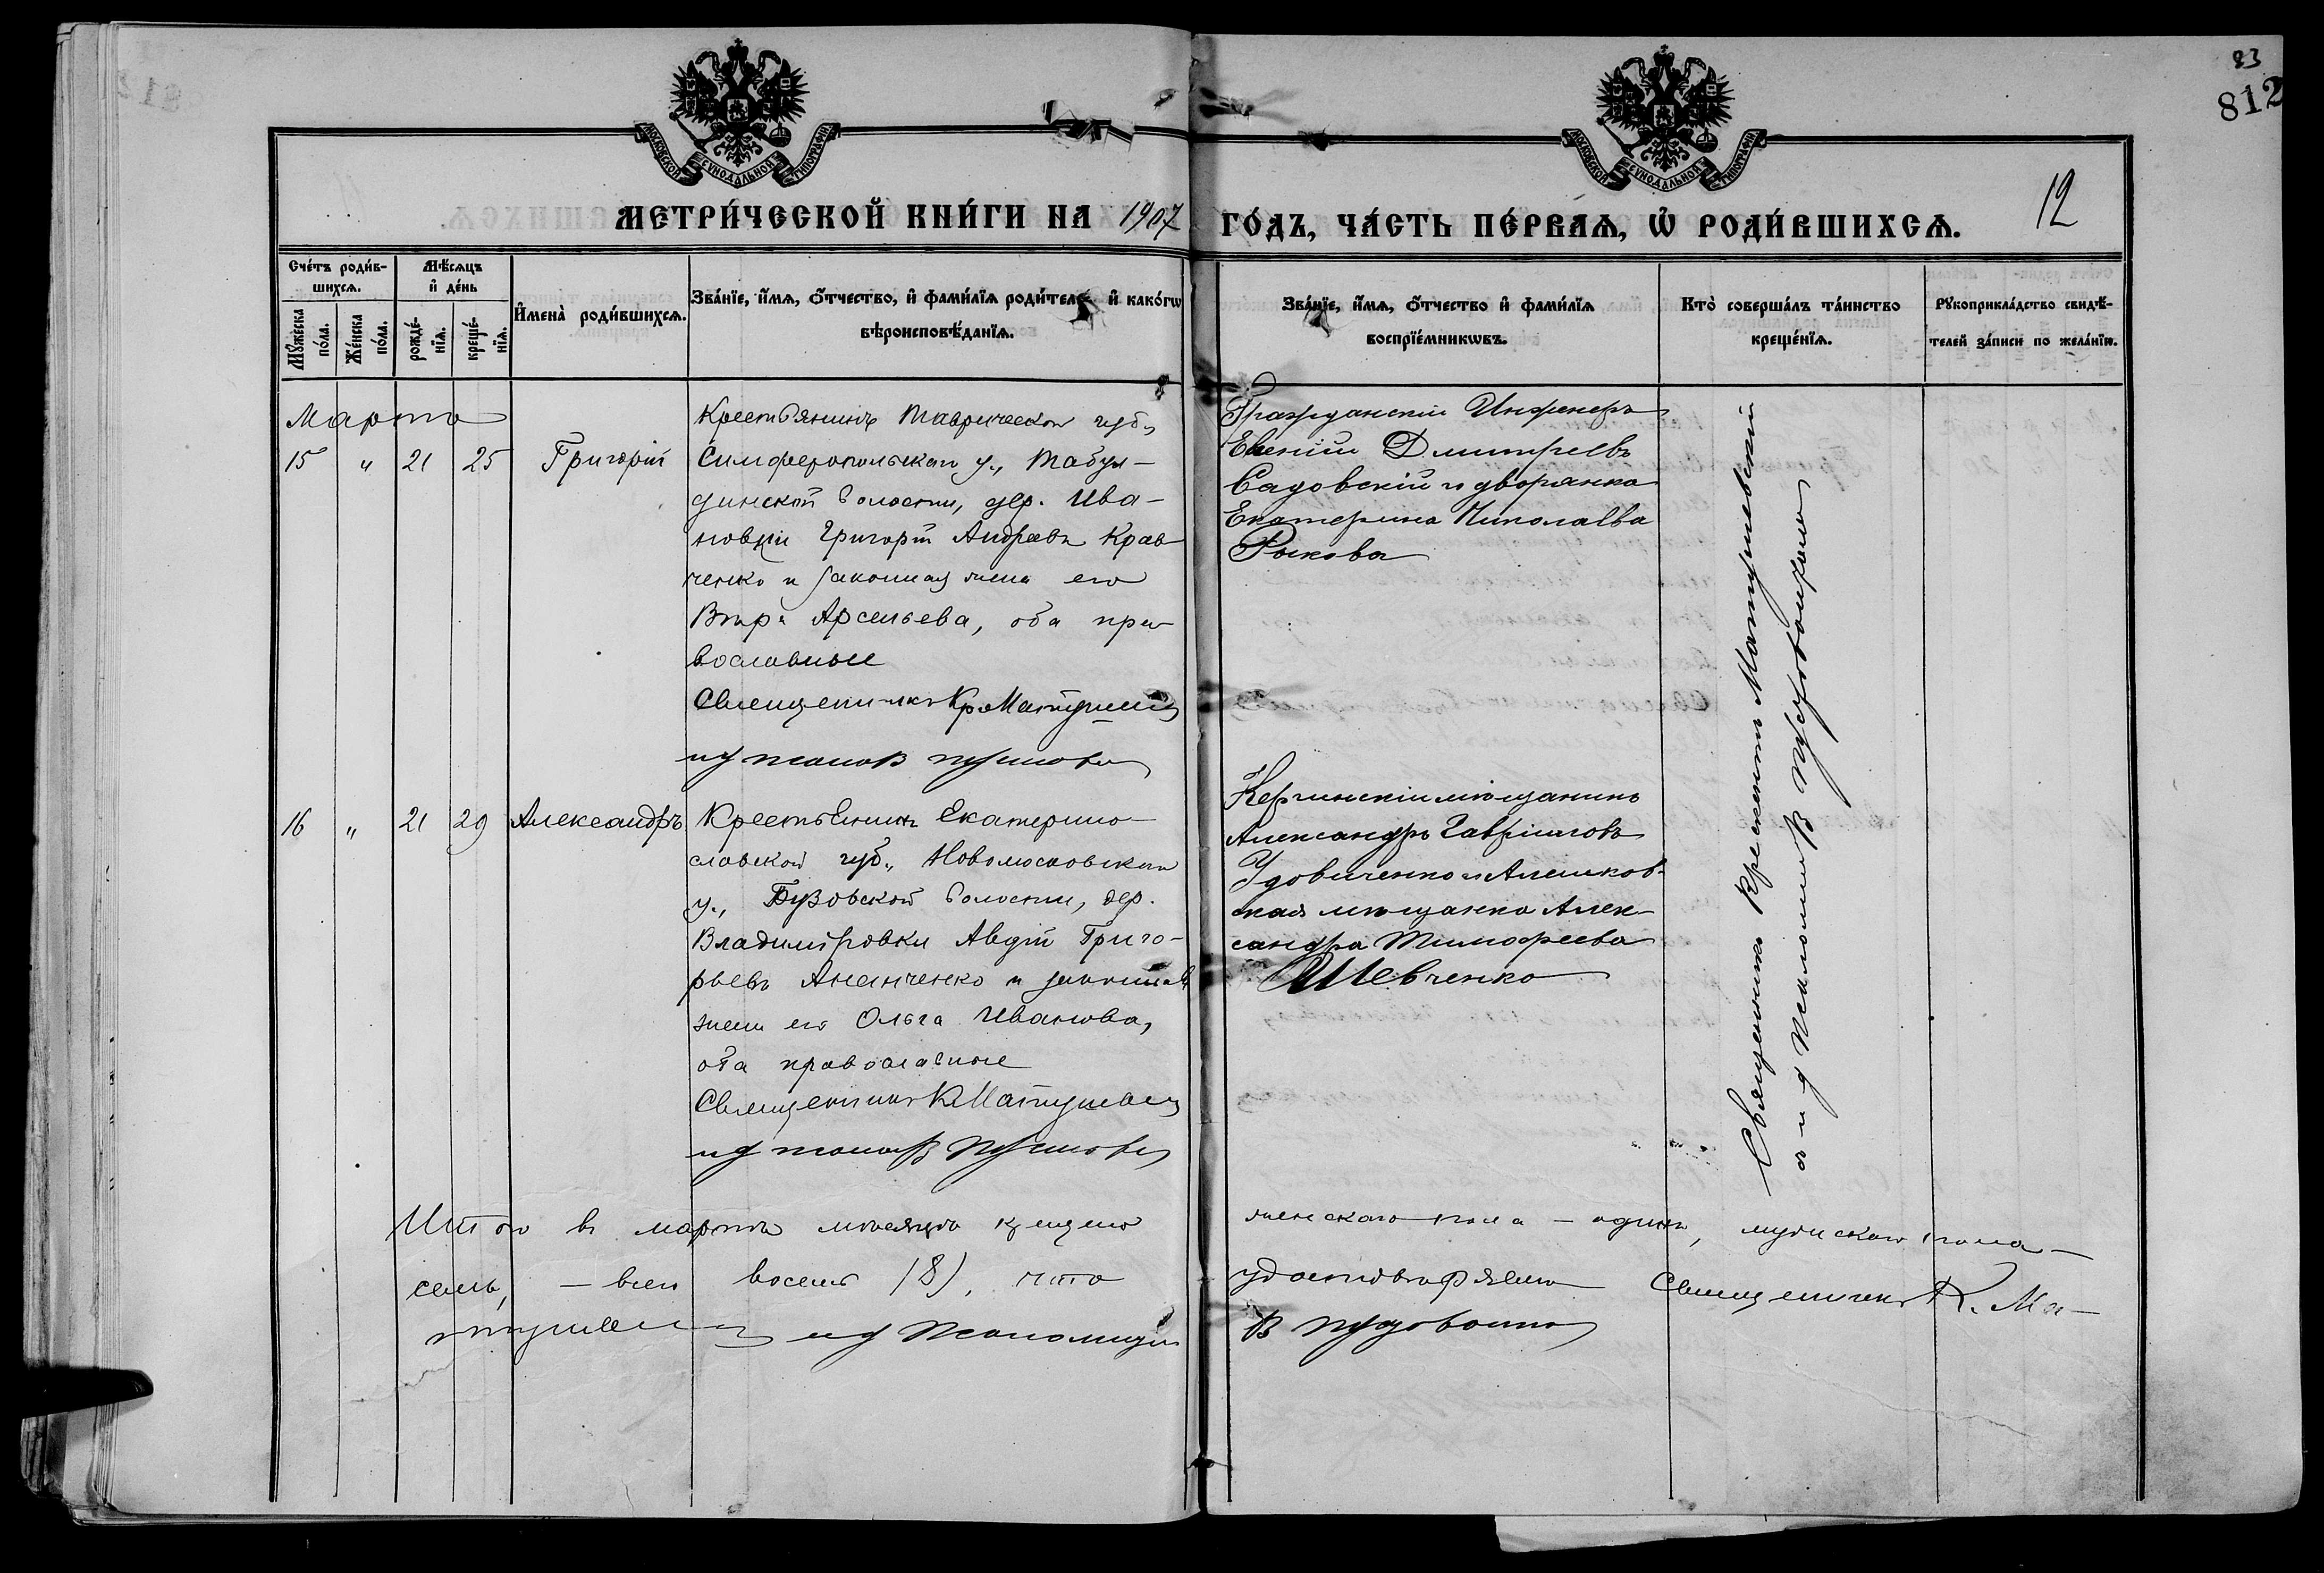 23
812
12
МОСКОВСКОЙ СѴНОДАЛЬНОЙ ТИПОГРАФІИ
МОСКОВСКОЙ СѴНОДАЛЬНОЙ ТИПОГРАФІИ
МЕТРИ́ЧЕСКОЙ КНИ́ГИ НА 1907 ГО́ДЪ, ЧА́СТЬ ПЕ́РВАѦ, Ѡ҆ РОДИ́ВШИХСѦ.
Сче́тъ роди́в-
шихсѧ.
Мꙋ́жеска по́ла.
Же́нска по́ла.
Мѣ́сѧцъ
и҆ де́нь
рожде́-
нїѧ.
креще́-
нїѧ.
И҆мена̀ роди́вшихсѧ.
Зва́нїе, и҆́мѧ, ѻ҆́тчество, и҆ фами́лїѧ роди́теле и҆ како́гѡ
вѣроисповѣ́данїѧ.
Зва́нїе, и҆́мѧ, ѻ҆́тчество и҆ фами́лїѧ
воспрїе́мникѡвъ.
Кто̀ соверша́лъ та́инство
креще́нїѧ.
Рꙋкоприкла́дство свидѣ́-
телей за́писи по жела́нїю.
Марта
15 " 21 25 Григорій
Крестьянинъ Таврической губ.,
Симферопольскаго у., Табул-
динской волости, дер. Ива-
новки Григорій Андреевъ Крав-
ченко и законная жена его
Вѣра Арсеньева, оба пра-
вославные
Священникъ Кр. Матушевскій
и д псалом В
Гражданскій Инженеръ
Евгеній Дмитріевъ
Садовскій и дворянка
Екатерина Николаева
Рыкова
16 " 21 29 Александръ
Крестьянинъ Екатерино-
славской губ., Новомосковскаго
у., Бузовской волости, дер.
Владиміровки Авдій Григо-
рьевъ Ананченко и законная
жена его Ольга Иванова,
оба православные
Священникъ К Матушевскій
и д псалом В
Керчинскій мѣщанинъ
Александръ Гавріиловъ
Удовиченко и Алешков-
ская мѣщанка Алек-
сандра Тимофеева
Шевченко
Священникъ Крискентъ Матушевскій
с и д псаломщ В
Итого въ мартѣ мѣсяцѣ крещено женскаго пола – одинъ, мужскаго пола –
семь, – всего восемь (8), что удостовѣряемъ Священникъ К. Ма-
тушевскій и д псаломщ В